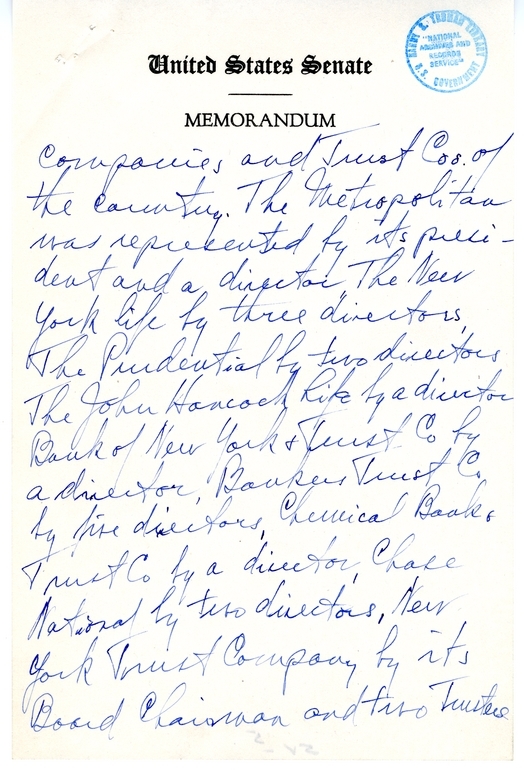 United States Senate
MEMORANDUM
HARRY S. TRUMAN LIBRARY
"NATIONAL
ARCHIVES AND
RECORDS
SERVICE"
U.S. GOVERNMENT
Companies and Trust Cos. of
the country. The Metropolitan
was represented by its presi-
dent and a director, The New
York life by three directors,
The Prudential by two directors
The John Hancock Life by a director
Bank of New York & Trust Co by
a director, Bankers Trust Co.
by five directors, Chemical Bank &
Trust Co by a director, Chase
National by two directors, New
York Trust Company by its
Board Chairman and two Trustees